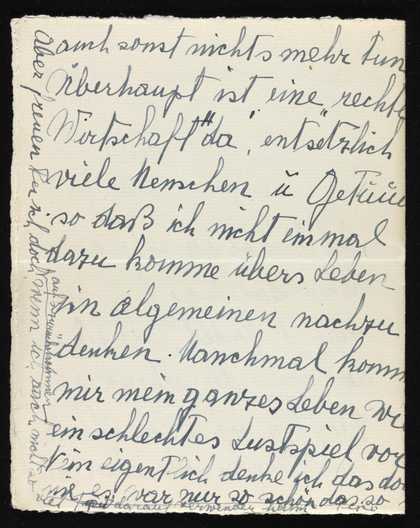 auch sonst nichts mehr tun
Überhaupt ist eine „rechte
Wirtschaft" da, entsetzlich
viele Menschen u Getüüe
so daß ich nicht einmal
dazu komme übers Leben
im algemeinen nachzu
denken. Manchmal kommt
mir mein ganzes Leben wie
ein schlechtes Lustspiel vor
Nein eigentlich denke ich das doch
nie es war nur so schön das so
daraus verwenden
Aber freuen Sie sich doch, wenn ich noch mal so